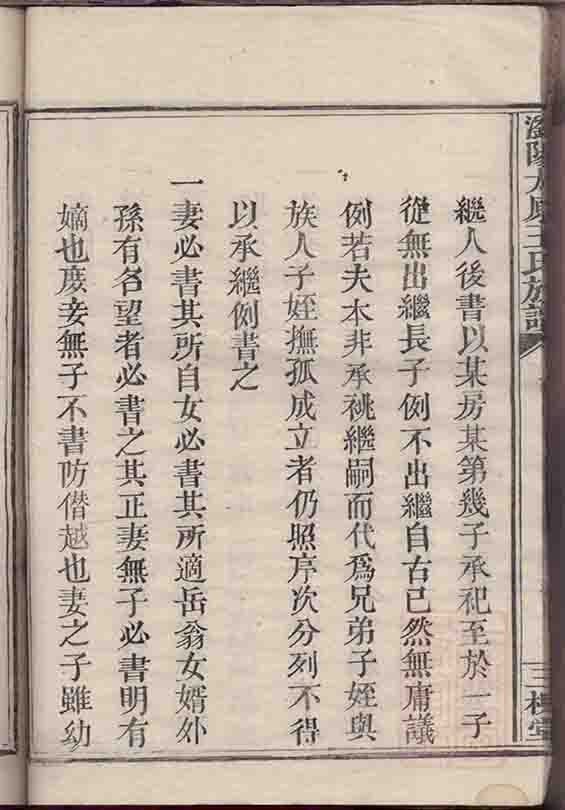 瀏陽太原王氏族譜
三槐堂
繼人後書以某房某第幾子承祀至於一子
從無出繼長子例不出繼自古已然無庸議
例若夫本非承祧繼嗣而代爲兄弟子姪與
族人子姪撫孤成立者仍照序次分列不得
以承繼例書之
一妻必書其所自女必書其所適岳翁女婿外
孫有名望者必書之其正妻無子必書明有
嫡也庶妾無子不書防僭越也妻之子雖幼